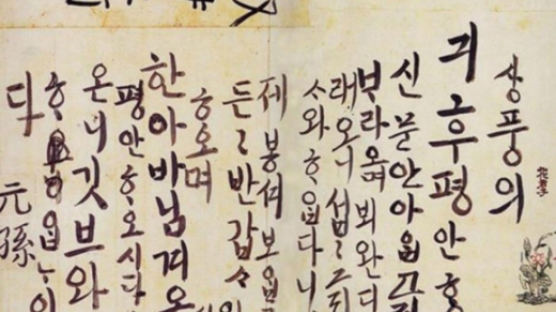 상풍의
긔후평안ᄒᆞ
신 문안 아ᄋᆞᆸ고져
ᄇᆞ라오며 뵈완디
래오니 섭〻 그리
ᄉᆞ와 ᄒᆞᄋᆞᆸ다니
제 봉셔 보ᄋᆞᆸ
든〻 반갑ᄉᆞ와
ᄒᆞ오며
한아바님 겨오
평안ᄒᆞ오시다
온니 깃브와
ᄒᆞᄋᆞᆸᄂᆞ이
다
元孫